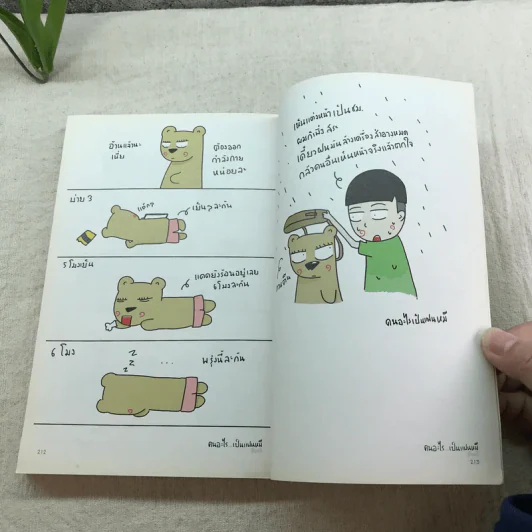 อ้วนแล้วนะ
เนี่ย
ต้องออก
กำลังกาย
หน่อยละ
บ่าย 3
เย็นๆละกัน
5 โมงเย็น
แดดยังร้อนอยู่เลย
6 โมงละกัน
6 โมง
z
z
z
...
พรุ่งนี้ละกัน
คนอะไรเป็นแฟนหมี
212
เห็นแต่งหน้าเป็นชม.
ผมก็เสิ่งสิระ
เดี๋ยวฝนมันล้างเครื่องสำอางหมด
กลัวคนอื่นเห็นหน้าจริงแล้วตกใจ
คนอะไรเป็นแฟนหมี
คนอะไรเป็นแฟนหมี
213